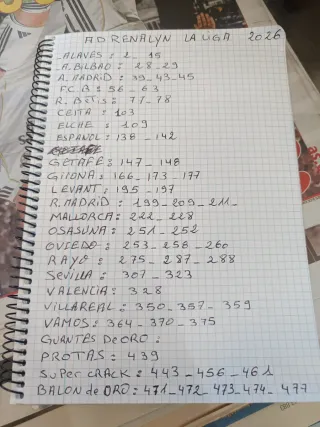 ADRENALYN LA LIGA 2026
ALAVÉS: 2_ 15
A. BILBAO: 28_29
A. MADRID: 39_43_45
F.C.B: 56_63
R. BETIS: 77_78
CEITA: 103
ELCHE: 109
ESPANOL: 138_142
GETAFE: 147_148
GIRONA: 166_173_177
LEVANT: 195_197
R. MADRID: 199_209_211_
MALLORCA: 222_228
OSASUNA: 251_252
OVIEDO: 253_256_260
RAYO: 275_287_288
SEVILLA: 307_323
VALENCIA: 328
VILLAREAL: 350_357_359
VAMOS: 364_370_375
GUANTES DE ORO:
PROTAS: 439
SUPER CRACK: 443_456_461
BALON de ORO: 471_472_473_474_477